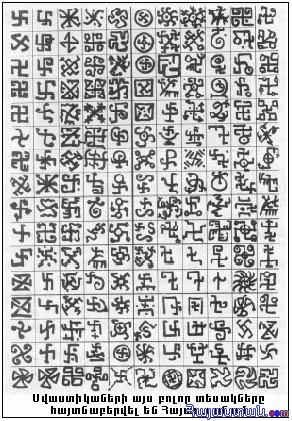 Սվաստիկաների այս բոլոր տեսակները
հայտնաբերվել են Հայաստանում